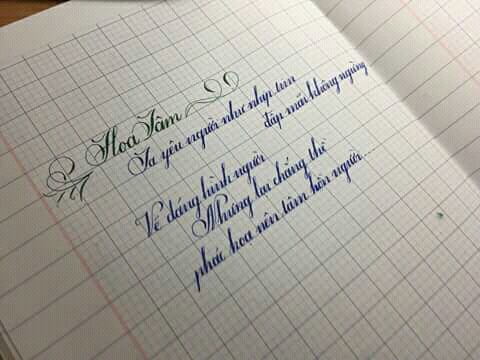 Hoa Tâm
Ta yêu người như nhịp tim
đập mãi không ngừng
Vẽ dáng hình người
Nhưng lại chẳng thể
phác hoạ nên tâm hồn người...